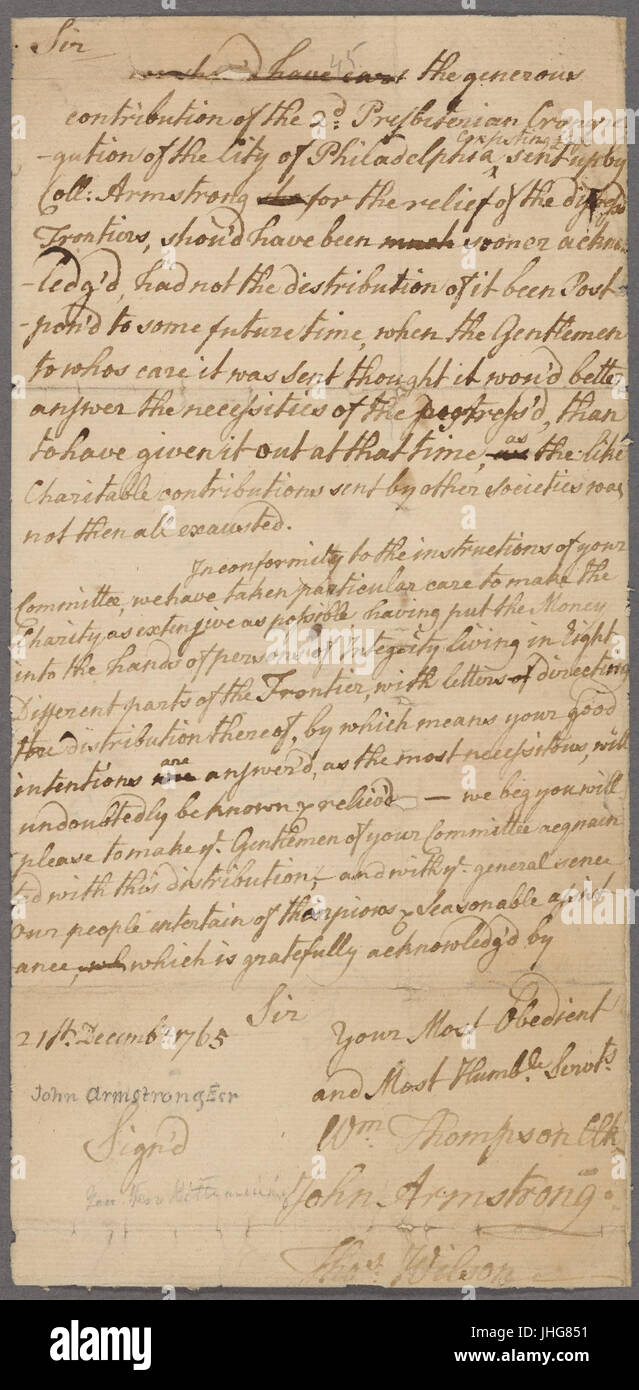 Sir
45
the generous
contribution of the 2d. Presbiterian Congre
-gation of the City of Philadelphia sent up by
Coll: Armstrong for the relief of the
Frontiers, shou'd have been much sooner ackno
-ledg'd, had not the distribution of it been Post
-pon'd to some future time, when the Gentlemen
to whos care it was sent thought it wou'd better
answer the necessities of the than
to have given it out at that time, as the like
Charitable contributions sent by other Societies was
not then all exausted.
In conformity to the instructions of your
Committee, we have taken particular care to make the
Charity as extensive as possible having put the Money
into the hands of persons of Integrity living in Eight
Different parts of the Frontier, with letters of directing
the distribution thereof, by which means your good
intentions are answer'd, as the most necessitous, will
undoubtedly be known & reliev'd — we beg you will
please to make ye. Gentlemen of your Committee aequain
ted with this distribution, and with ye. general sence
our people entertain of the pious & Seasonable assist
ance, which is gratefully acknowledg'd by
Sir
21st. Decembr. 1765
Your Most Obedient
and Most Humble. Servts.
John Armstrong Esr
Wm. Thompson Clk
Sign'd
John Armstrong
Thos. Wilson
alamy
alamy stock photo
JHG851
www.alamy.com